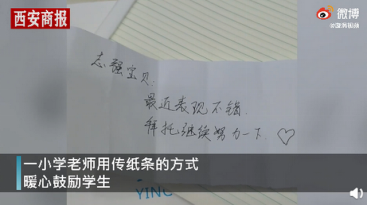 西安商报
微博
志强宝贝
最近表现不错
拜托继续努力一下♡
一小学老师用传纸条的方式
暖心鼓励学生
YING